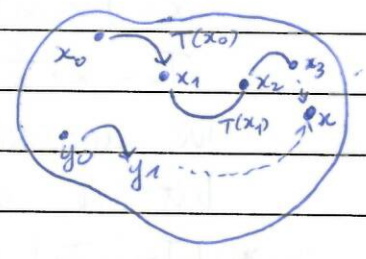 x₀ T(x₀)
x₁ x₂ x₃
T(x₁) x
y₀ y₁